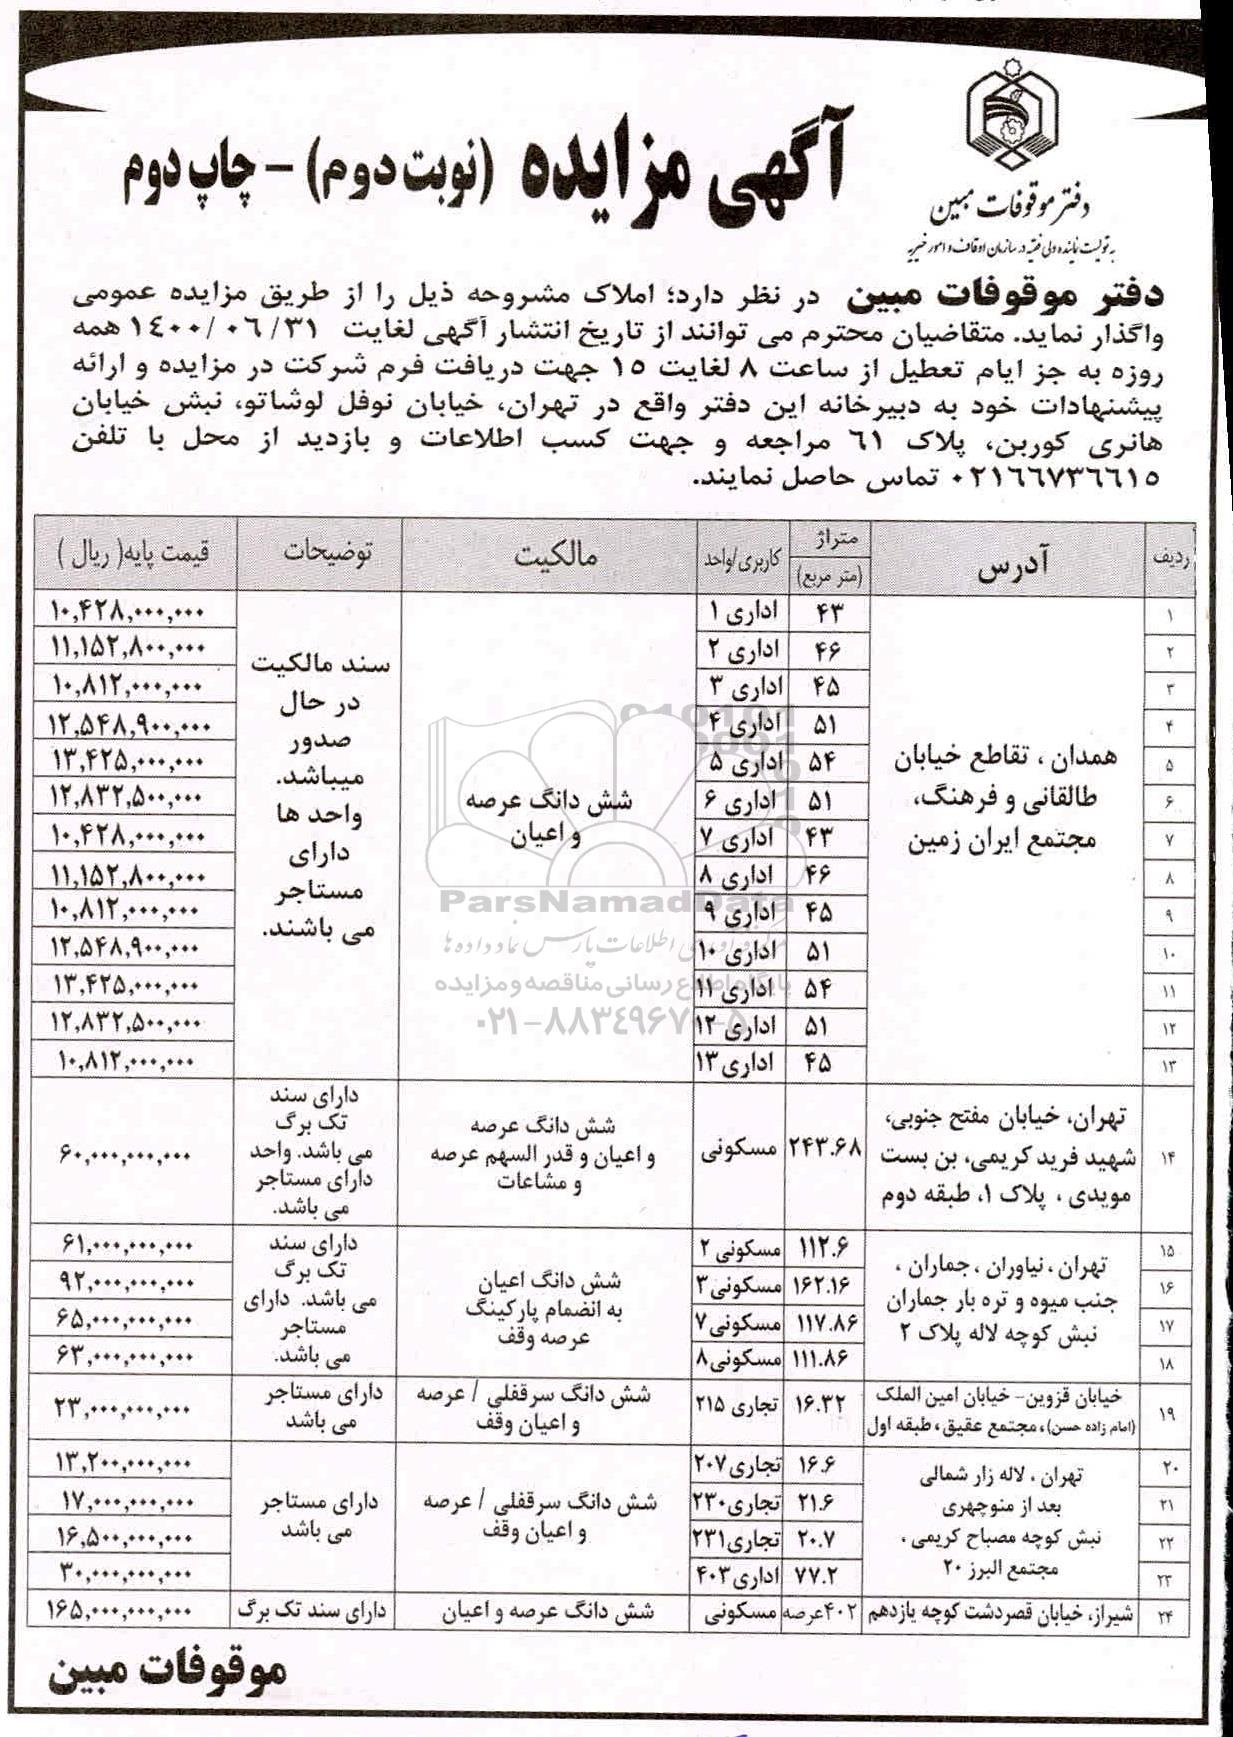 آگهی مزایده (نوبت دوم) – چاپ دوم
دفتر موقوفات مبین
به تولیت نماینده ولی فقیه در سازمان اوقاف و امور خیریه
دفتر موقوفات مبین در نظر دارد؛ املاک مشروحه ذیل را از طریق مزایده عمومی
واگذار نماید. متقاضیان محترم می توانند از تاریخ انتشار آگهی لغایت ۱۴۰۰/۰۶/۳۱ همه
روزه به جز ایام تعطیل از ساعت ۸ لغایت ۱۵ جهت دریافت فرم شرکت در مزایده و ارائه
پیشنهادات خود به دبیرخانه این دفتر واقع در تهران، خیابان نوفل لوشاتو، نبش خیابان
هانری کوربن، پلاک ۶۱ مراجعه و جهت کسب اطلاعات و بازدید از محل با تلفن
۰۲۱۶۶۷۳۶۶۱۵ تماس حاصل نمایند.
ردیف آدرس متراژ (متر مربع) کاربری/واحد مالکیت توضیحات قیمت پایه( ریال )
۱ ۴۳ اداری ۱ ۱۰,۴۲۸,۰۰۰,۰۰۰
۲ ۴۶ اداری ۲ ۱۱,۱۵۲,۸۰۰,۰۰۰
۳ ۴۵ اداری ۳ ۱۰,۸۱۲,۰۰۰,۰۰۰
۴ ۵۱ اداری ۴ ۱۲,۵۴۸,۹۰۰,۰۰۰
۵ ۵۴ اداری ۵ ۱۳,۴۲۵,۰۰۰,۰۰۰
۶ ۵۱ اداری ۶ ۱۲,۸۳۲,۵۰۰,۰۰۰
۷ ۴۳ اداری ۷ ۱۰,۴۲۸,۰۰۰,۰۰۰
۸ ۴۶ اداری ۸ ۱۱,۱۵۲,۸۰۰,۰۰۰
۹ ۴۵ اداری ۹ ۱۰,۸۱۲,۰۰۰,۰۰۰
۱۰ ۵۱ اداری ۱۰ ۱۲,۵۴۸,۹۰۰,۰۰۰
۱۱ ۵۴ اداری ۱۱ ۱۳,۴۲۵,۰۰۰,۰۰۰
۱۲ ۵۱ اداری ۱۲ ۱۲,۸۳۲,۵۰۰,۰۰۰
۱۳ ۴۵ اداری ۱۳ ۱۰,۸۱۲,۰۰۰,۰۰۰
همدان ، تقاطع خیابان
طالقانی و فرهنگ،
مجتمع ایران زمین
شش دانگ عرصه
و اعیان
سند مالکیت
در حال
صدور
میباشد.
واحد ها
دارای
مستاجر
می باشند.
۱۴ ۲۴۳.۶۸ مسکونی ۶۰,۰۰۰,۰۰۰,۰۰۰
تهران، خیابان مفتح جنوبی،
شهید فرید کریمی، بن بست
مویدی ، پلاک ۱، طبقه دوم
شش دانگ عرصه
و اعیان و قدر السهم عرصه
و مشاعات
دارای سند
تک برگ
می باشد. واحد
دارای مستاجر
می باشد.
۱۵ ۱۱۲.۶ مسکونی ۲ ۶۱,۰۰۰,۰۰۰,۰۰۰
۱۶ ۱۶۲.۱۶ مسکونی ۳ ۹۲,۰۰۰,۰۰۰,۰۰۰
۱۷ ۱۱۷.۸۶ مسکونی ۷ ۶۵,۰۰۰,۰۰۰,۰۰۰
۱۸ ۱۱۱.۸۶ مسکونی ۸ ۶۳,۰۰۰,۰۰۰,۰۰۰
تهران ، نیاوران ، جماران ،
جنب میوه و تره بار جماران
نبش کوچه لاله پلاک ۲
شش دانگ اعیان
به انضمام پارکینگ
عرصه وقف
دارای سند
تک برگ
می باشد. دارای
مستاجر
می باشد.
۱۹ ۱۶.۳۲ تجاری ۲۱۵ ۲۳,۰۰۰,۰۰۰,۰۰۰
خیابان قزوین- خیابان امین الملک
(امام زاده حسن)، مجتمع عقیق، طبقه اول
شش دانگ سرقفلی / عرصه
و اعیان وقف
دارای مستاجر
می باشد
۲۰ ۱۶.۶ تجاری ۲۰۷ ۱۳,۲۰۰,۰۰۰,۰۰۰
۲۱ ۲۱.۶ تجاری ۲۳۰ ۱۷,۰۰۰,۰۰۰,۰۰۰
۲۲ ۲۰.۷ تجاری ۲۳۱ ۱۶,۵۰۰,۰۰۰,۰۰۰
۲۳ ۷۷.۲ اداری ۴۰۳ ۳۰,۰۰۰,۰۰۰,۰۰۰
تهران ، لاله زار شمالی
بعد از منوچهری
نبش کوچه مصباح کریمی ،
مجتمع البرز ۲۰
شش دانگ سرقفلی / عرصه
و اعیان وقف
دارای مستاجر
می باشد
۲۴ شیراز، خیابان قصردشت کوچه یازدهم ۴۰۲ عرصه مسکونی شش دانگ عرصه و اعیان دارای سند تک برگ ۱۶۵,۰۰۰,۰۰۰,۰۰۰
موقوفات مبین
ParsNamadData
پایگاه اطلاع رسانی مناقصه و مزایده